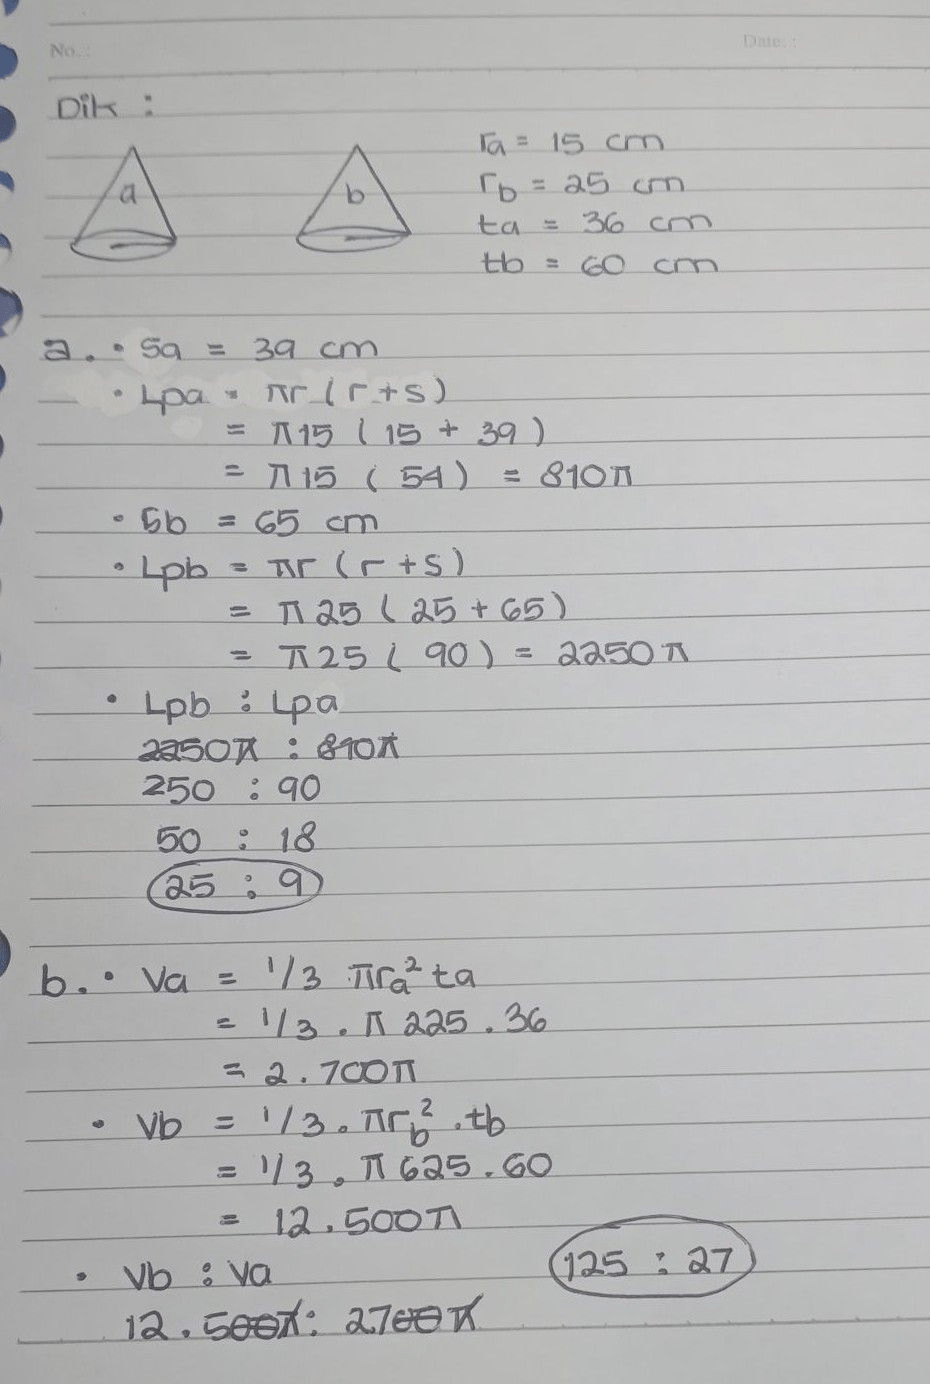 No.:
Date.:
Dik :
a
b
ra = 15 cm
rb = 25 cm
ta = 36 cm
tb = 60 cm
a. • Sa = 39 cm
• Lpa = πr (r+s)
= π15 (15 + 39)
= π15 (54) = 810π
• Sb = 65 cm
• Lpb = πr (r+s)
= π25 (25 + 65)
= π25 (90) = 2250π
• Lpb : Lpa
2250π : 810π
250 : 90
50 : 18
25 : 9
b. • Va = 1/3 πra² ta
= 1/3 . π 225 . 36
= 2.700π
• Vb = 1/3 . πrb² . tb
= 1/3 . π 625 . 60
= 12.500π
• Vb : Va
125 : 27
12.500π : 2700π